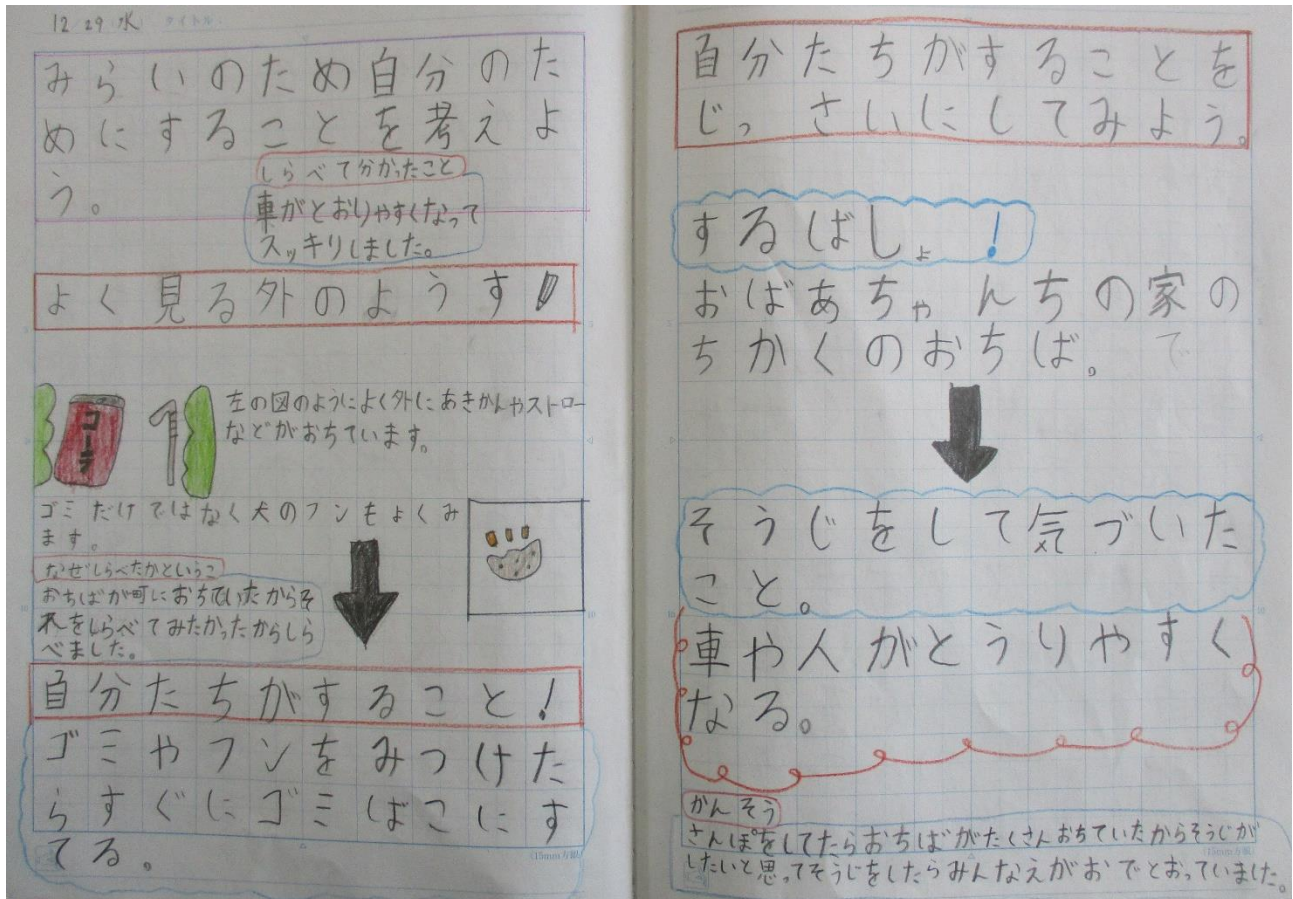 12 29 水
タイトル
みらいのため自分のた
めにすることを考えよ
う。
しらべて分かったこと
車がとおりやすくなって
スッキリしました。
よく見る外のようす
コーラ
左の図のようによく外にあきかんやストロー
などがおちています。
ゴミだけではなく犬のフンもよくみ
ます。
なぜしらべたかというこ
おちばが町におちていたからそ
れをしらべてみたかったからしら
べました。
自分たちがすること!
ゴミやフンをみつけた
らすぐにゴミばこにす
てる。
(15mm方眼)
自分たちがすることを
じっさいにしてみよう。
するばしょ!
おばあちゃんちの家の
ちかくのおちば。で
そうじをして気づいた
こと。
車や人がとうりやすく
なる。
かんそう
さんぽをしてたらおちばがたくさんおちていたからそうじが
したいと思ってそうじをしたらみんなえがおでとおっていました。
(15mm方眼)